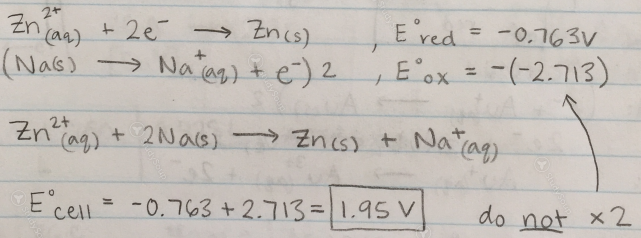 Zn²⁺(aq) + 2e⁻ ⟶ Zn(s) , E°red = -0.763V
(Na(s) ⟶ Na⁺(aq) + e⁻) 2 , E°ox = -(-2.713)
Zn²⁺(aq) + 2Na(s) ⟶ Zn(s) + Na⁺(aq)
E°cell = -0.763 + 2.713 = 1.95 V
do not ×2